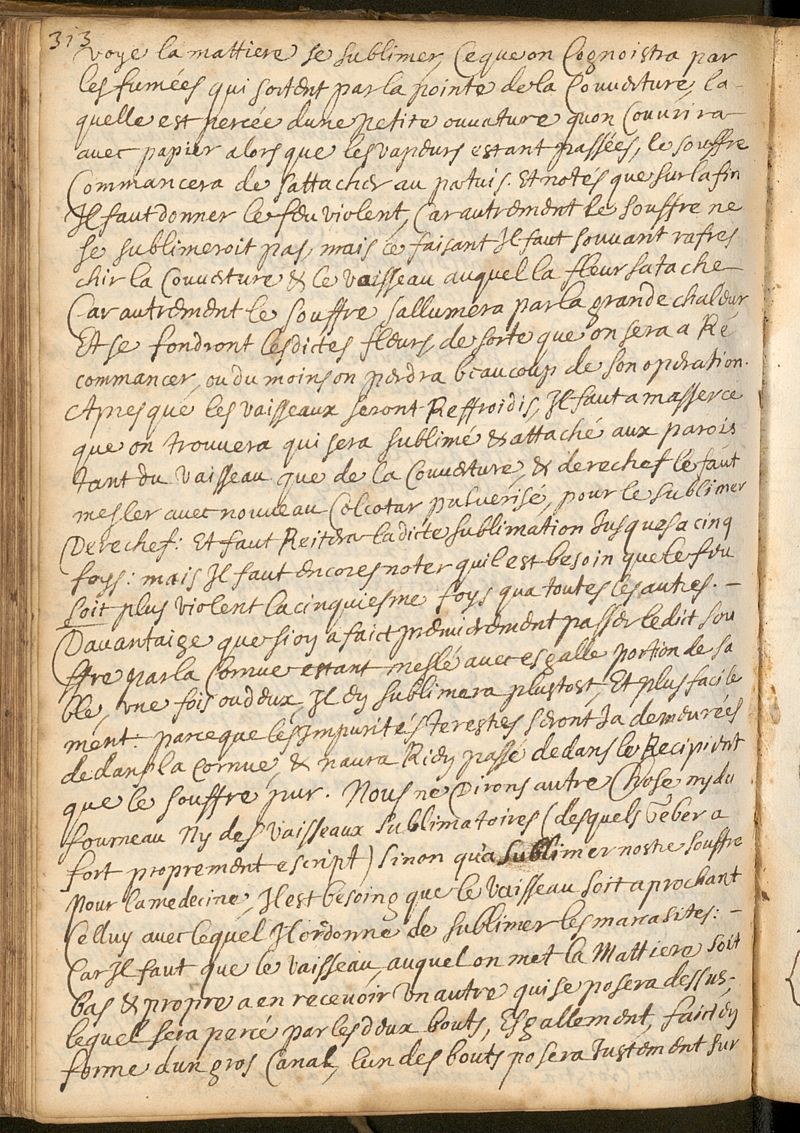 313
voye la mattiere se sublimer, Ce que on Cognoistra par
les fumées qui sortent par la pointe de la Couverture, la-
quelle est percée dune petite ouverture quon Couvrira
avec papier alors que les vapeurs estant passées, le souffre
Commancera de sattacher au pertuis. Et notes que sur la fin
Il faut donner le feu violent, Car autrement le souffre ne
se sublimeroit pas, mais le faisant Il faut souvant rafres
chir la Couverture & le vaisseau auquel la fleur satache
Car autrement le souffre sallumera par la grande chaleur
Et se fondront lesdictes fleurs de sorte que on sera a Re
commancer, ou du moins on perdra beaucoup de son operation.
Apres que les vaisseaux seront Reffroidis, Il faut amasser ce
que on trouvera qui sera sublimé & attaché aux parois
tant du vaisseau que de la Couverture, & derechef le faut
mesler avec nouveau Colcotar pulverisé, pour le sublimer
Derechef: Et faut Reiterer ladicte sublimation Jusques a cinq
foys: mais Il faut encores noter quil est besoin que le feu
soit plus violent la cinquiesme foys qua toutes les autres. -
Davantaige que si on a faict premierement passer le dict sou
ffre par la Cornue estant meslé avec esgalle portion de sa
ble, une fois ou deux, Il en sublimera plustost, Et plus facile
ment: parce que les Impurités terestres seront Ja demeurées
dedans la Cornue, & naura Rien passé dedans le Recipient
que le souffre pur. Nous ne Dirons autre Chose ny du
fourneau Ny des vaisseaux sublimatoires (desquels Geber a
fort proprement escript) sinon qua sublimer nostre souffre
Pour la medecine, Il est besoing que le vaisseau soit aprochant
Celluy avec lequel Il ordonne de sublimer les marcasites: -
Car Il faut que le vaisseau, auquel on met la Mattiere soit
bas & propre a en recevoir un autre qui se posera dessus,
lequel sera percé par les deux bouts, Esgallement, faict en
forme dun gros Canal, lun des bouts posera Justement sur